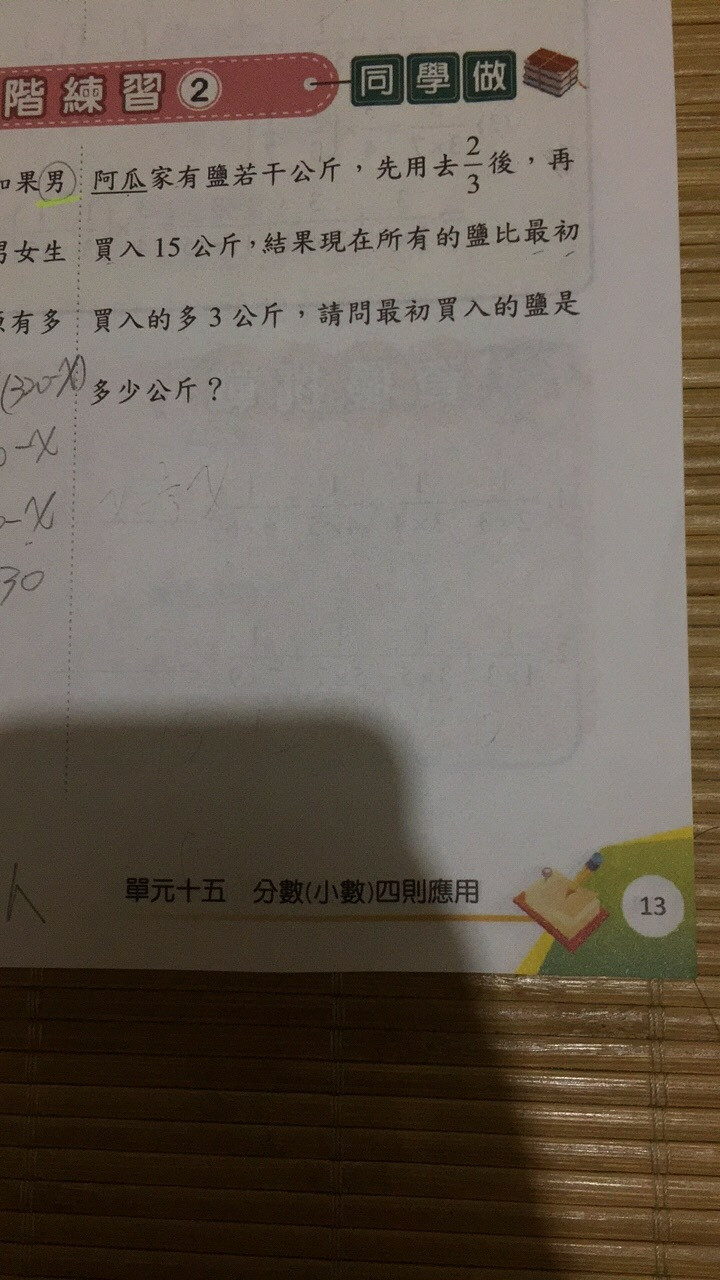 階練習2 同學做
如果男
阿瓜家有鹽若干公斤，先用去2/3後，再
男女生
買入15公斤，結果現在所有的鹽比最初
有多
買入的多3公斤，請問最初買入的鹽是
(320-X)
多少公斤？
-X
-X
30
單元十五 分數(小數)四則應用
13